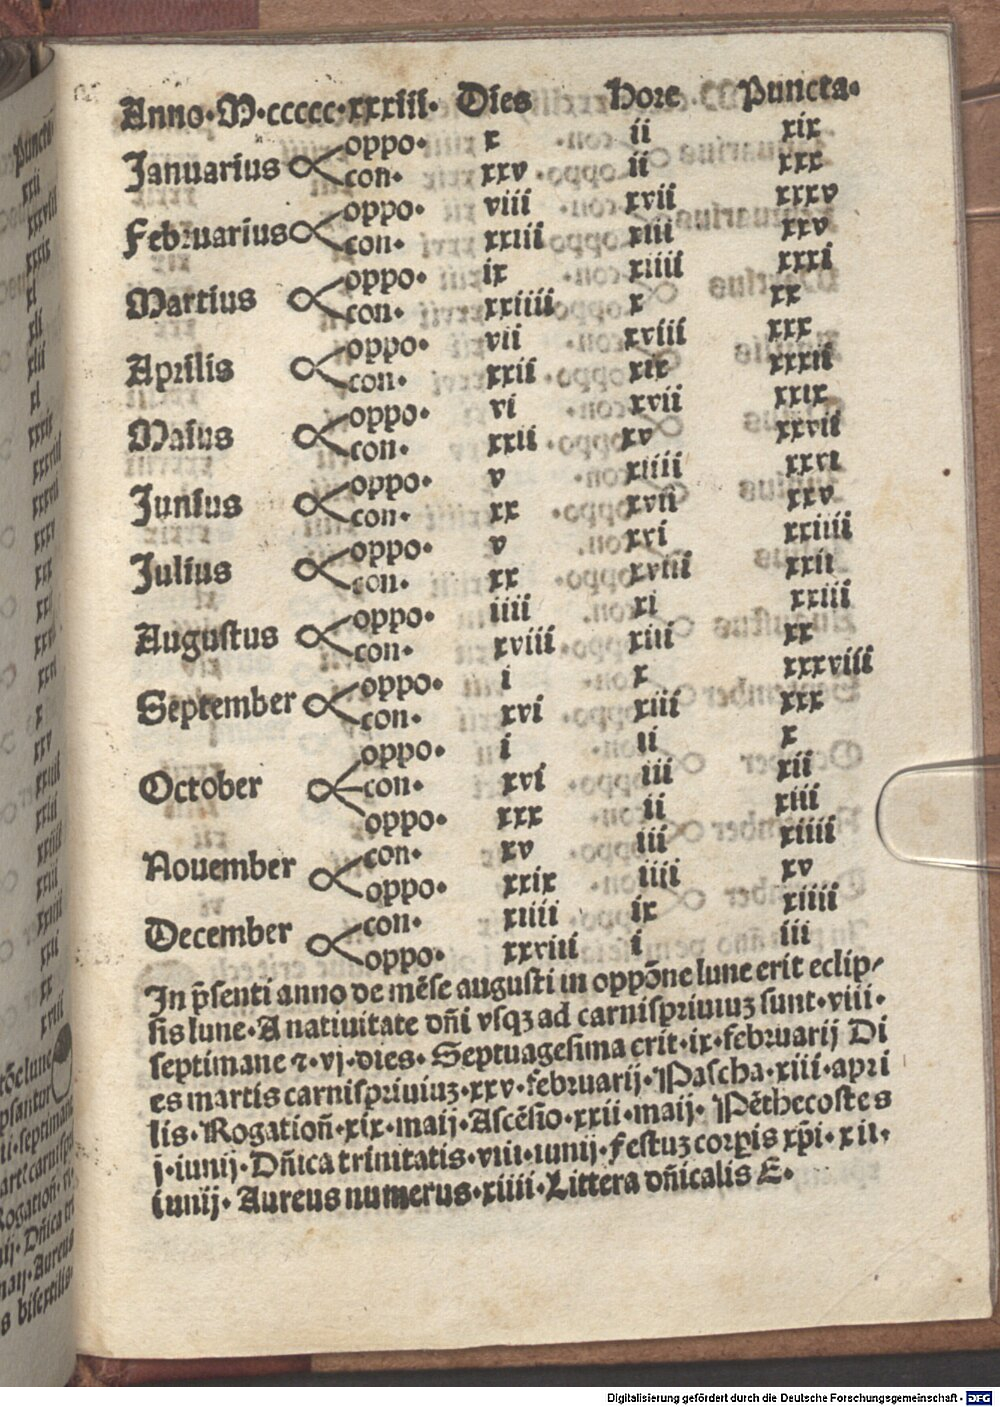 Anno·M·ccccc·xxxiii· Dies Hore Puncta·
Januarius oppo· x ii xix
con· xxv ii xxx
Februarius oppo· viii xvii xxxv
con· xxiii xiii xxv
Martius oppo· ix xiiii xxxi
con· xxiiii x xx
Aprilis oppo· vii xviii xxx
con· xxii xix xxxii
Maius oppo· vi xvii xxix
con· xxii xv xxvii
Junius oppo· v xiiii xxvi
con· xx xvii xxv
Julius oppo· v xvi xxiiii
con· xx xviii xxii
Augustus oppo· iiii xi xxiii
con· xviii xiii xx
September oppo· i x xxxviii
con· xvi xiii xxx
oppo· i ii x
October con· xvi iii xii
oppo· xxx ii xiii
Nouember con· xv iii xiiii
oppo· xxix iiii xv
December con· xiiii ix xiiii
oppo· xxviii i iii
In p̄senti anno de mēse augusti in oppōne lune erit eclip⸗
sis lune·A natiuitate dn̄i vsqꝫ ad carnispriuiuꝫ sunt·viii·
septimane ⁊·vj·dies· Septuagesima erit·ix·februarij Di
es martis carnispriuiuꝫ·xxv·februarij·Pascha·xiii·apri
lis·Rogation̄·xix·maij·Ascēsio·xxii·maij· Pēthecostes
j·iunij·Dn̄ica trinitatis·viii·iunij·festuꝫ corpis xp̄i·xii,
iunij· Aureus numerus·xiiii·Littera dn̄icalis E·
Digitalisierung gefördert durch die Deutsche Forschungsgemeinschaft - DFG